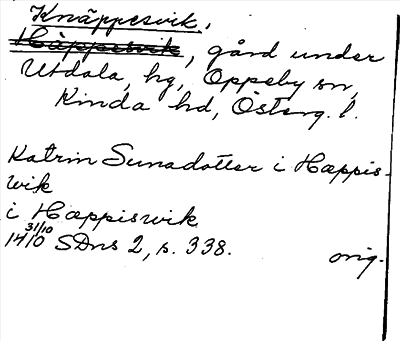 Knäppesvik,
Häppesvik, gård under
Utdala, hg, Oppeby sn,
Kinda hd, Österg. l.
Katrin Sunadotter i Hæppis-
wik
i Hæppiswik
14 31/10 10 SDns 2, s. 338. orig.